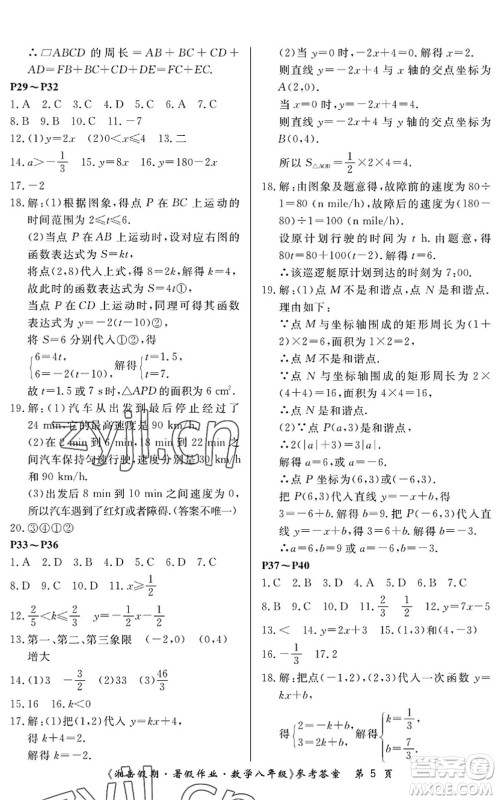 ∴□ABCD 的周长=AB+BC+CD+
AD=FB+BC+BC+FB=2(BC+
FB)=2FC.
P29～P32
1. A 2. C 3. C 4. D 5. C 6. A 7. C
8. B 9. B 10. A 11. D
12. (1)y=2x (2)0<x≤4 13. 二
14. a>-1/3 15. y=8x 16. y=2x-2
17. -2
18. 解:(1)根据图象,得点 P 在 BC 上运动的
时间范围为 2≤t≤6.
(2)当点 P 在 AB 上运动时,设对应右图的
函数表达式为 S=kt(k≠0).
将(2,8)代入上式,得 8=2k,解得 k=4.
故此时的函数表达式为 S=4t①,
当点 P 在 CD 上运动时,同理可得其函数
表达式为 y=-2(t-10)②,
当 S=6 分别代入①②,得
{6=4t, 6=-2(t-10), 解得{t=1.5, t=7.
故 t=1.5 或 7 s 时,△APD 的面积为 6 cm².
19. 解:(1)汽车从出发到最后停止共经过了
24 min,它的最高速度是 90 km/h.
(2)在 2 min 到 6 min,18 min 到 22 min 之
间汽车保持匀速行驶,速度分别是 30 km/h
和 90 km/h.
(3)出发后 8 min 到 10 min 之间速度为 0,
所以汽车遇到了红灯或者障碍.(答案不唯一)
20. ③④①②
P33～P36
1. A 2. C 3. C 4. D 5. A 6. D 7. C
8. D 9. D 10. D 11. x≥1/2
12. 2/5<k≤2/3 y=-1/2x-1/2
13. 第一、第二、第三象限 (-2,0) (0,4)
增大
14. (1)3 (2)-3/2
15. 16 16. k<0
17. 解:(1)把(1,2)代入 y=kx+4,得 k+4=2,
解得 k=-2.
(2)当 y=0 时,-2x+4=0,解得 x=2,
则直线 y=-2x+4 与 x 轴的交点坐标为
A(2,0).
当 x=0 时,y=-2x+4=4,
则直线 y=-2x+4 与 y 轴的交点坐标为
B(0,4).
所以 S△AOB=1/2×2×4=4.
18. 解:由图象及题意得,故障前的速度为 80÷
1=80(n mile/h),故障后的速度为(180-
80)÷1=100(n mile/h).
设原计划行驶的时间为 t h. 由题意,得
80t=80+100(t-2),解得 t=6.
∴该巡逻艇原计划到达的时刻为 7:00.
19. 解:(1)点 M 不是和谐点,点 N 是和谐点.
理由如下:
∵点 M 与坐标轴围成的矩形周长为(1+
2)×2=6,面积为 1×2=2,
∴点 M 不是和谐点.
∵点 N 与坐标轴围成的矩形周长为
(4+4)×2=16,面积为 4×4=16,
∴点 N 是和谐点.
(2)∵点 P(a,3)是和谐点,
∴2(|a|+3)=3|a|,解得 a=±6.
∴点 P 坐标为(6,3)或(-6,3).
把 P(6,3)代入直线 y=-x+b,得
3=-6+b,解得 b=9.
把 P(-6,3)代入直线 y=-x+b,得
3=6+b,解得 b=-3.
∴a=6,b=9 或 a=-6,b=-3.
P37～P40
1. C 2. B 3. D 4. A 5. C 6. B 7. C
8. B 9. B 10. D 11. {2/3 3/2} 12. y=7x-5
13. < 14. y=2x+3 15. x<4
16. -1/3 17. 2
18. 解:把点(-1,2),(2,3)代入一次函数 y=
kx+b,得
《湘岳假期·暑假作业·数学八年级》参考答案 第 5 页
zyjl.cn